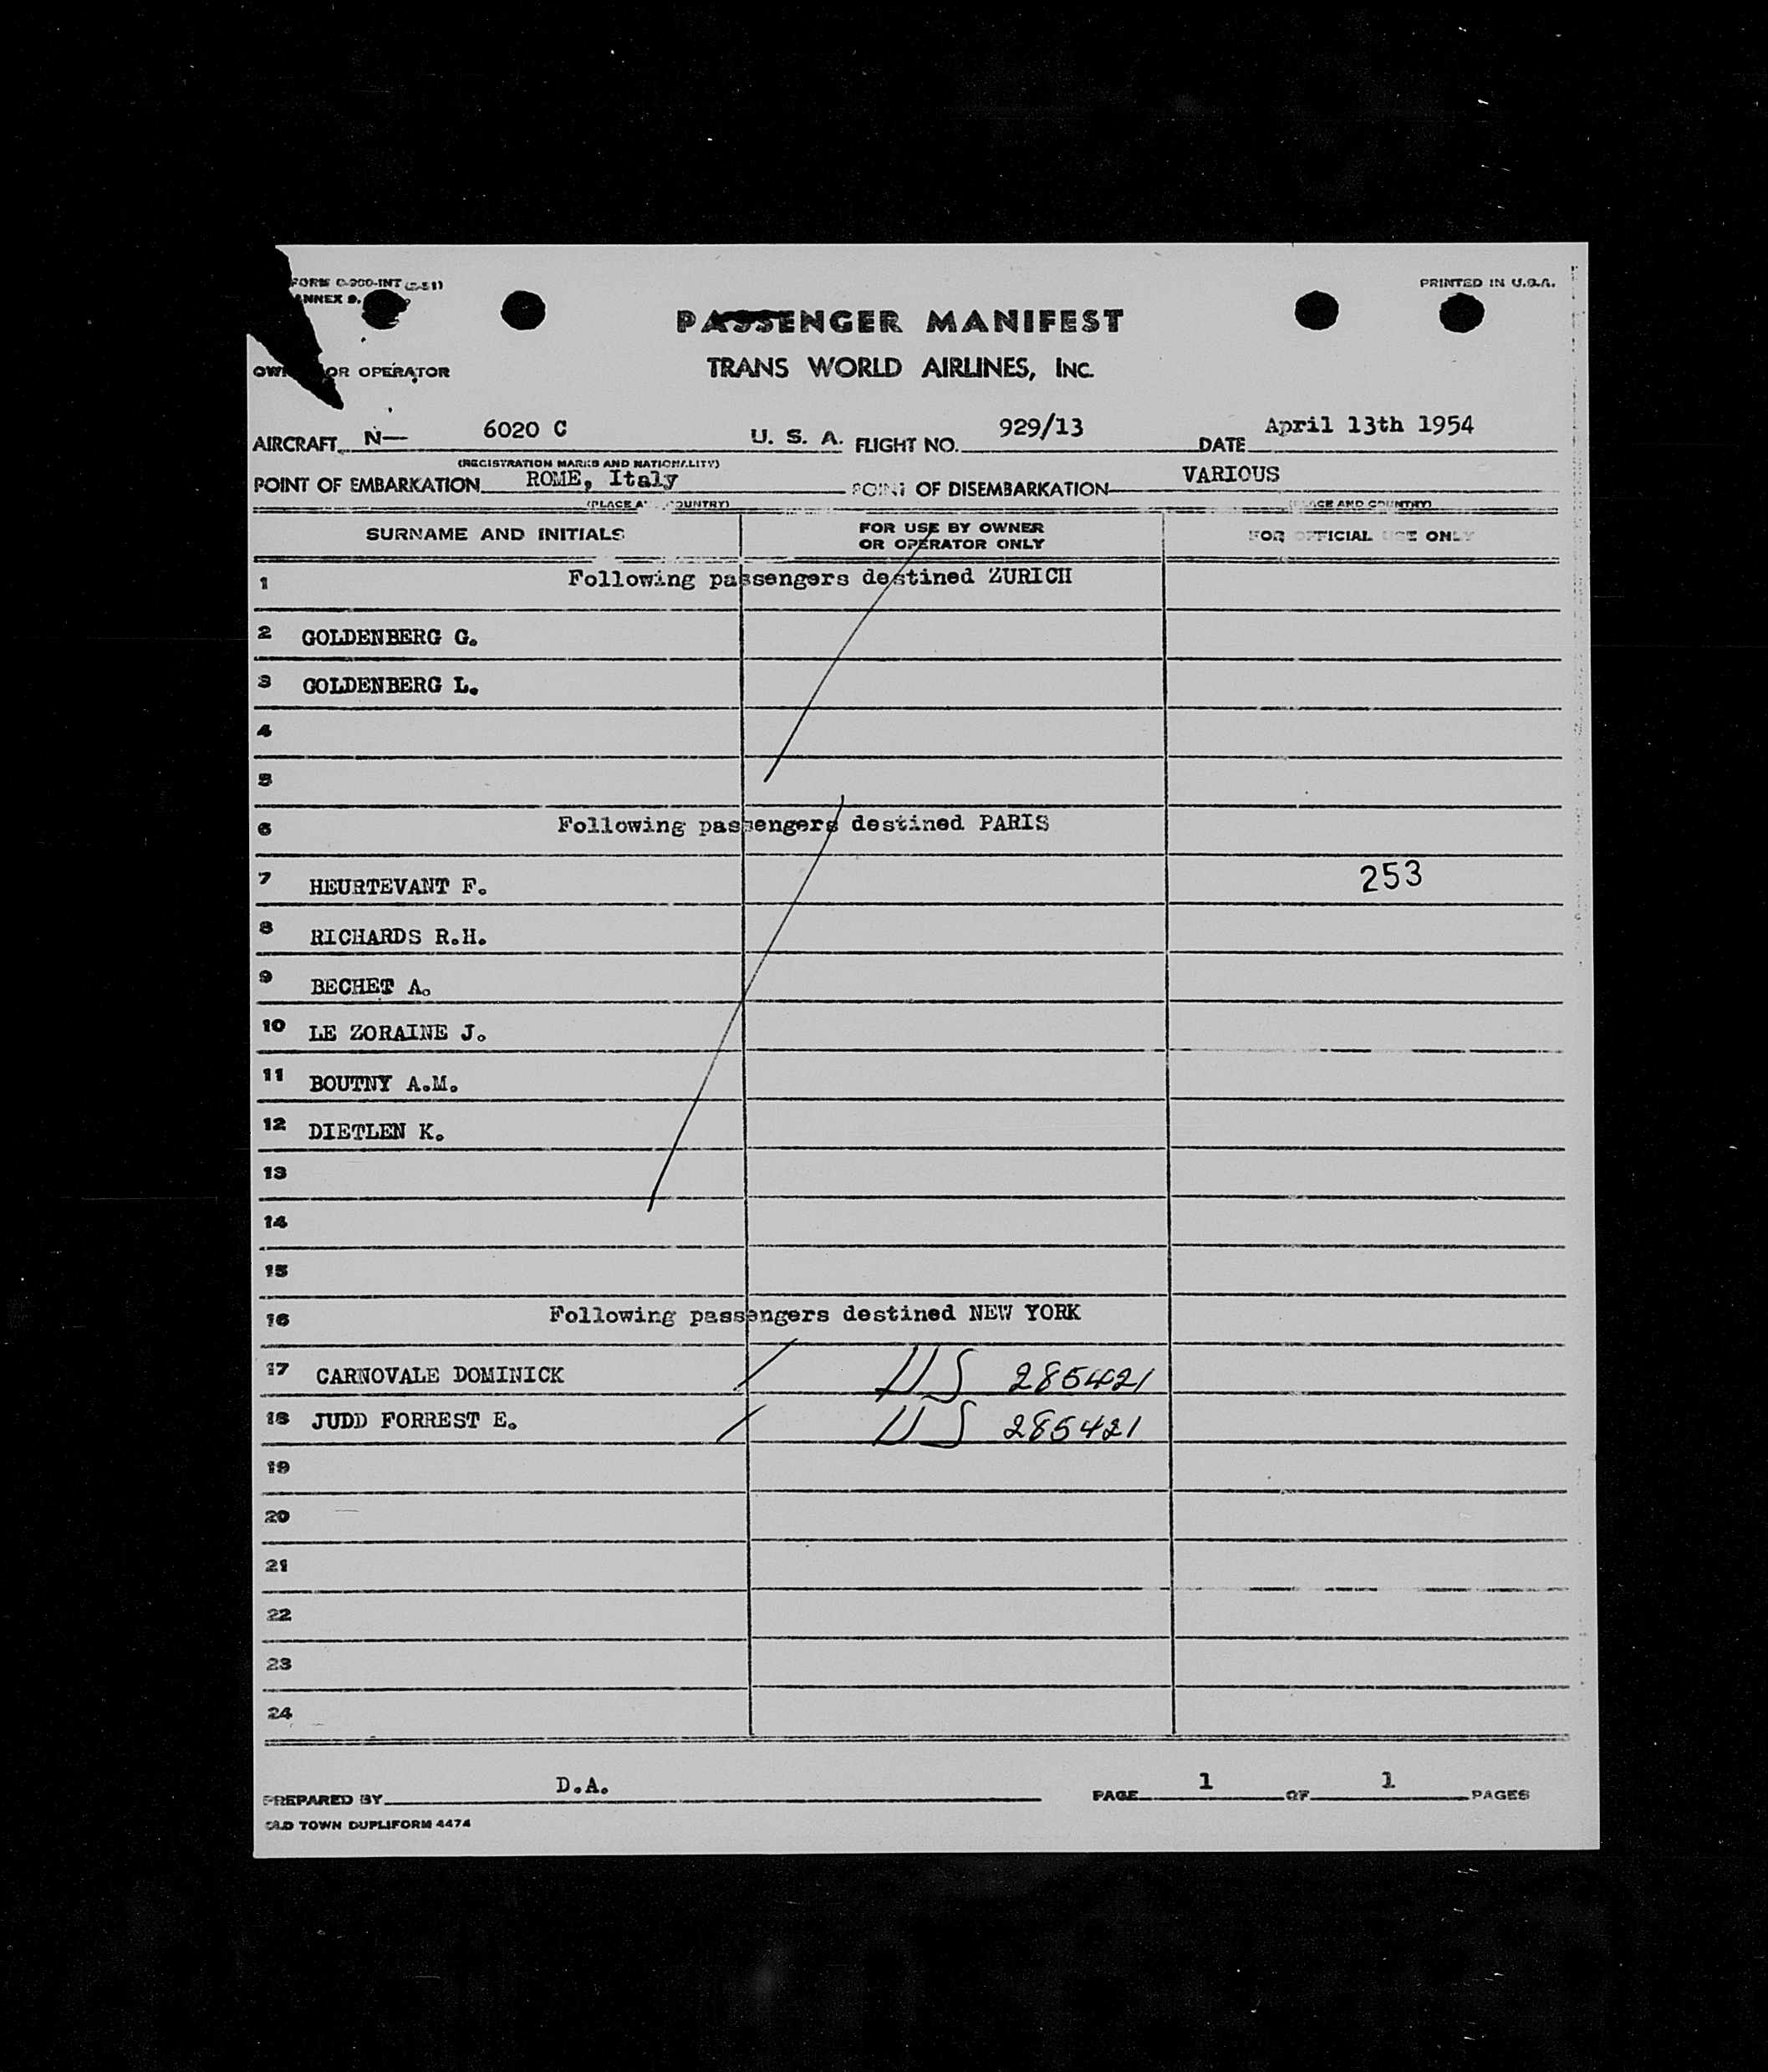 FORM C-900-INT (2-51)
ANNEX 9.
PRINTED IN U.S.A.
PASSENGER MANIFEST
TRANS WORLD AIRLINES, INC.
OR OPERATOR
AIRCRAFT N— 6020 C U. S. A. FLIGHT NO. 929/13 DATE April 13th 1954
(REGISTRATION MARKS AND NATIONALITY)
POINT OF EMBARKATION ROME, Italy POINT OF DISEMBARKATION VARIOUS
(PLACE A COUNTRY) (PLACE AND COUNTRY)
SURNAME AND INITIALS FOR USE BY OWNER OR OPERATOR ONLY FOR OFFICIAL USE ONLY
1 Following passengers destined ZURICH
2 GOLDENBERG G.
3 GOLDENBERG L.
4
5
6 Following passengers destined PARIS
7 HEURTEVANT F. 253
8 RICHARDS R.H.
9 BECHET A.
10 LE ZORAINE J.
11 BOUTNY A.M.
12 DIETLEN K.
13
14
15
16 Following passengers destined NEW YORK
17 CARNOVALE DOMINICK / US 285421
18 JUDD FORREST E. / US 285421
19
20
21
22
23
24
PREPARED BY D.A. PAGE 1 OF 1 PAGES
OLD TOWN DUPLIFORM 4474